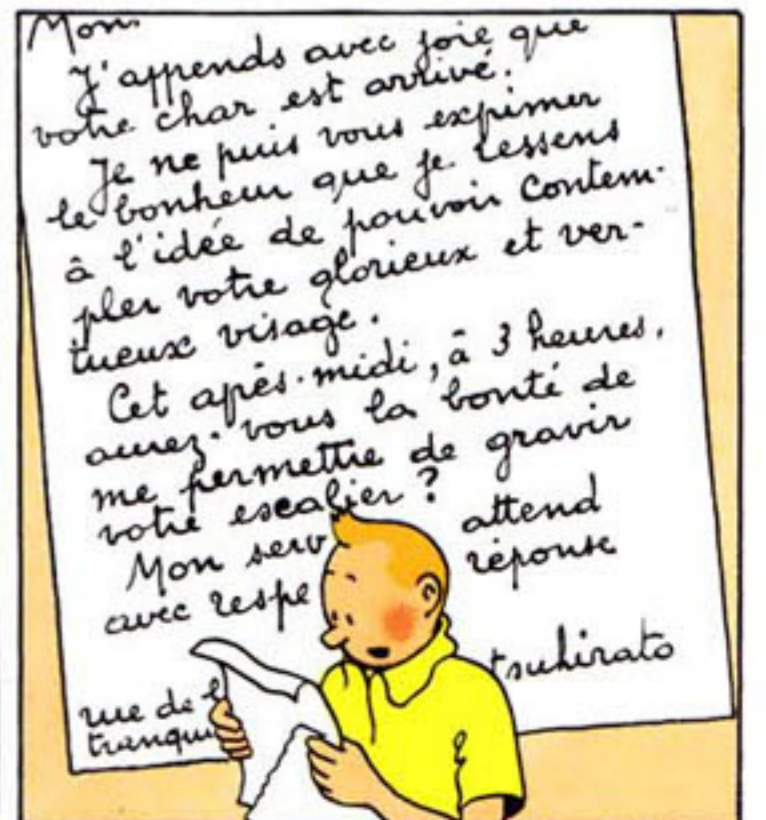 Mon.
J'apprends avec joie que
votre char est arrivé.
Je ne puis vous exprimer
le bonheur que je ressens
à l'idée de pouvoir contem-
pler votre glorieux et ver-
tueux visage.
Cet après-midi, à 3 heures,
aurez-vous la bonté de
me permettre de gravir
votre escalier ?
Mon serv attend
avec respe réponse
tsuhirato
rue de l
tranqui